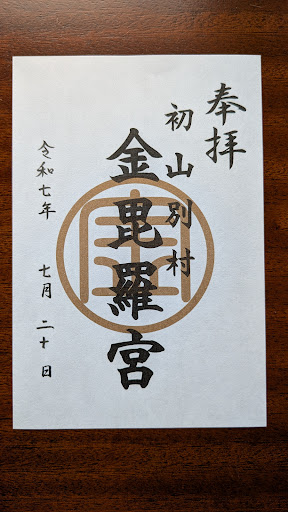 奉拝
初山別村
金毘羅宮
令和七年 七月 二十日